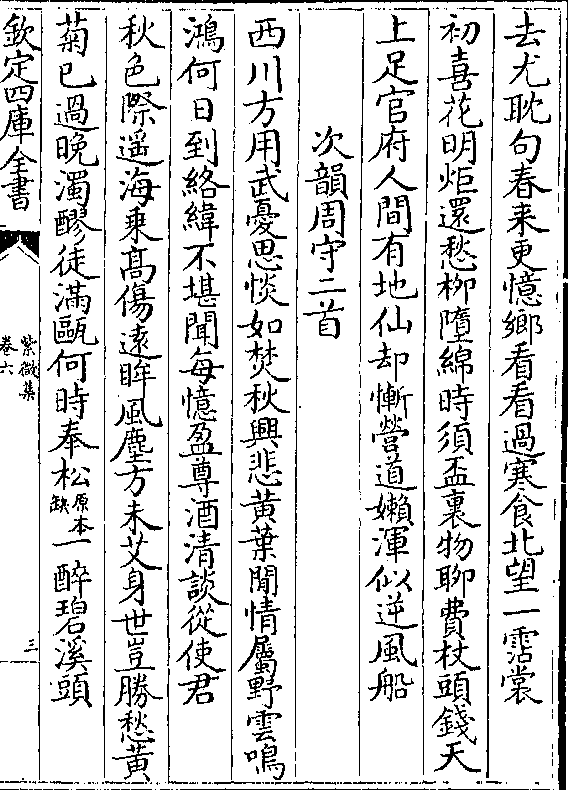 去尤耽句春来更憶鄉看看過寒食北望一霑裳
初喜花明炬還愁柳墮綿時須盃裏物聊費杖頭錢天
上足官府人間有地仙却慚營道嬾渾似逆風船
次韻周守二首
西川方用武憂思惔如焚秋興悲黄葉閒情屬野雲鳴
鴻何日到絡緯不堪聞每憶盈尊酒清談從使君
秋色際遥海乗髙傷遠眸風塵方未艾身世豈勝愁黄
菊已過晚濁醪徒滿甌何時奉松原本缺一醉碧溪頭
欽定四庫全書
紫微集
卷六
三